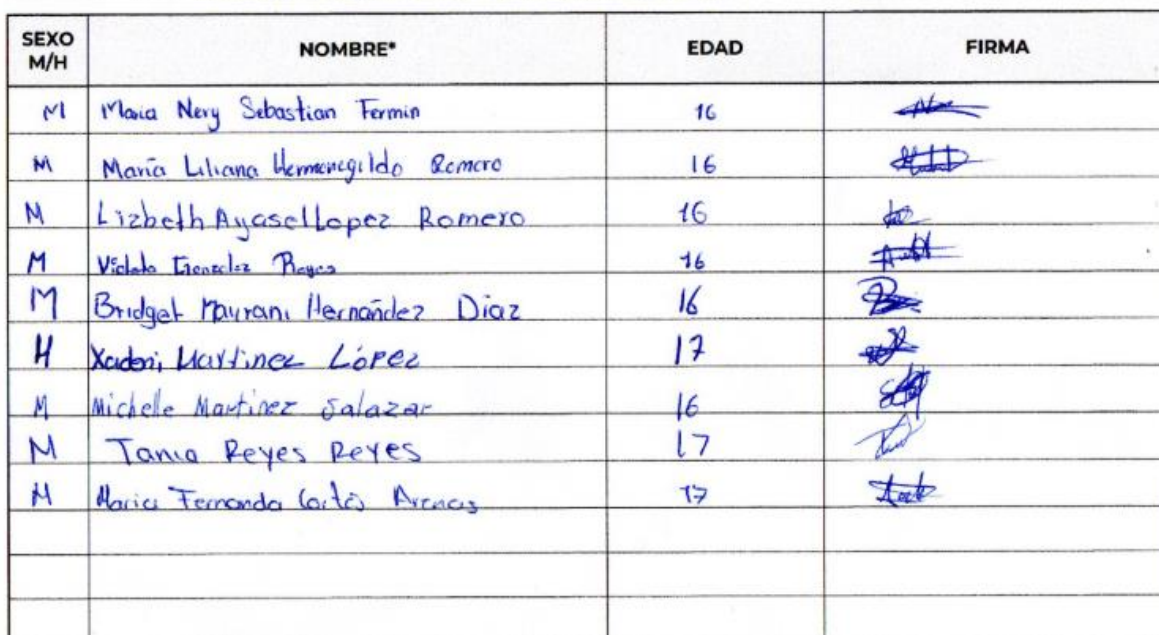 SEXO M/H NOMBRE* EDAD FIRMA
M Maria Nery Sebastian Fermin 16
M María Liliana Hermenegildo Romero 16
M Lizbeth Ayasel Lopez Romero 16
M González Reyes 16
M Bridget Mayrani Hernández Díaz 16
H Xadani Martinez López 17
M Michelle Martinez Salazar 16
M Tania Reyes Reyes 17
M Maria Fernanda Cortés Arenas 17